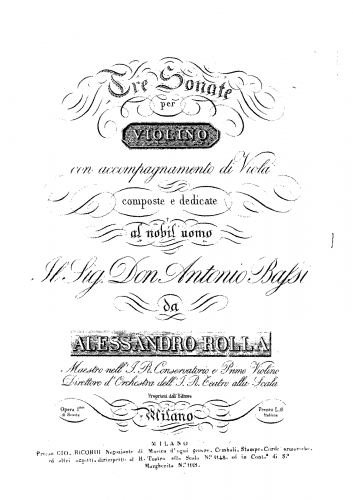 Tre Sonate
per
VIOLINO
con accompagnamento di Viola
composte e dedicate
al nobil uomo
Il Sig. Don Antonio Bassi
da
ALESSANDRO ROLLA
Maestro nell' I. R. Conservatorio e Primo Violino
Direttore d'Orchestra dell' I. R. Teatro alla Scala
Proprietà dell'Editore
Opera
di Sonate
Milano
Prezzo L.
Italiane
MILANO
Presso GIO. RICORDI Negoziante di Musica d'ogni genere, Cembali, Stampe, Corde armoniche,
ed altri oggetti, dirimpetto al R. Teatro alla Scala N.º 1148. ed in Cont.ª di S.ª
Margherita N.º 1118.